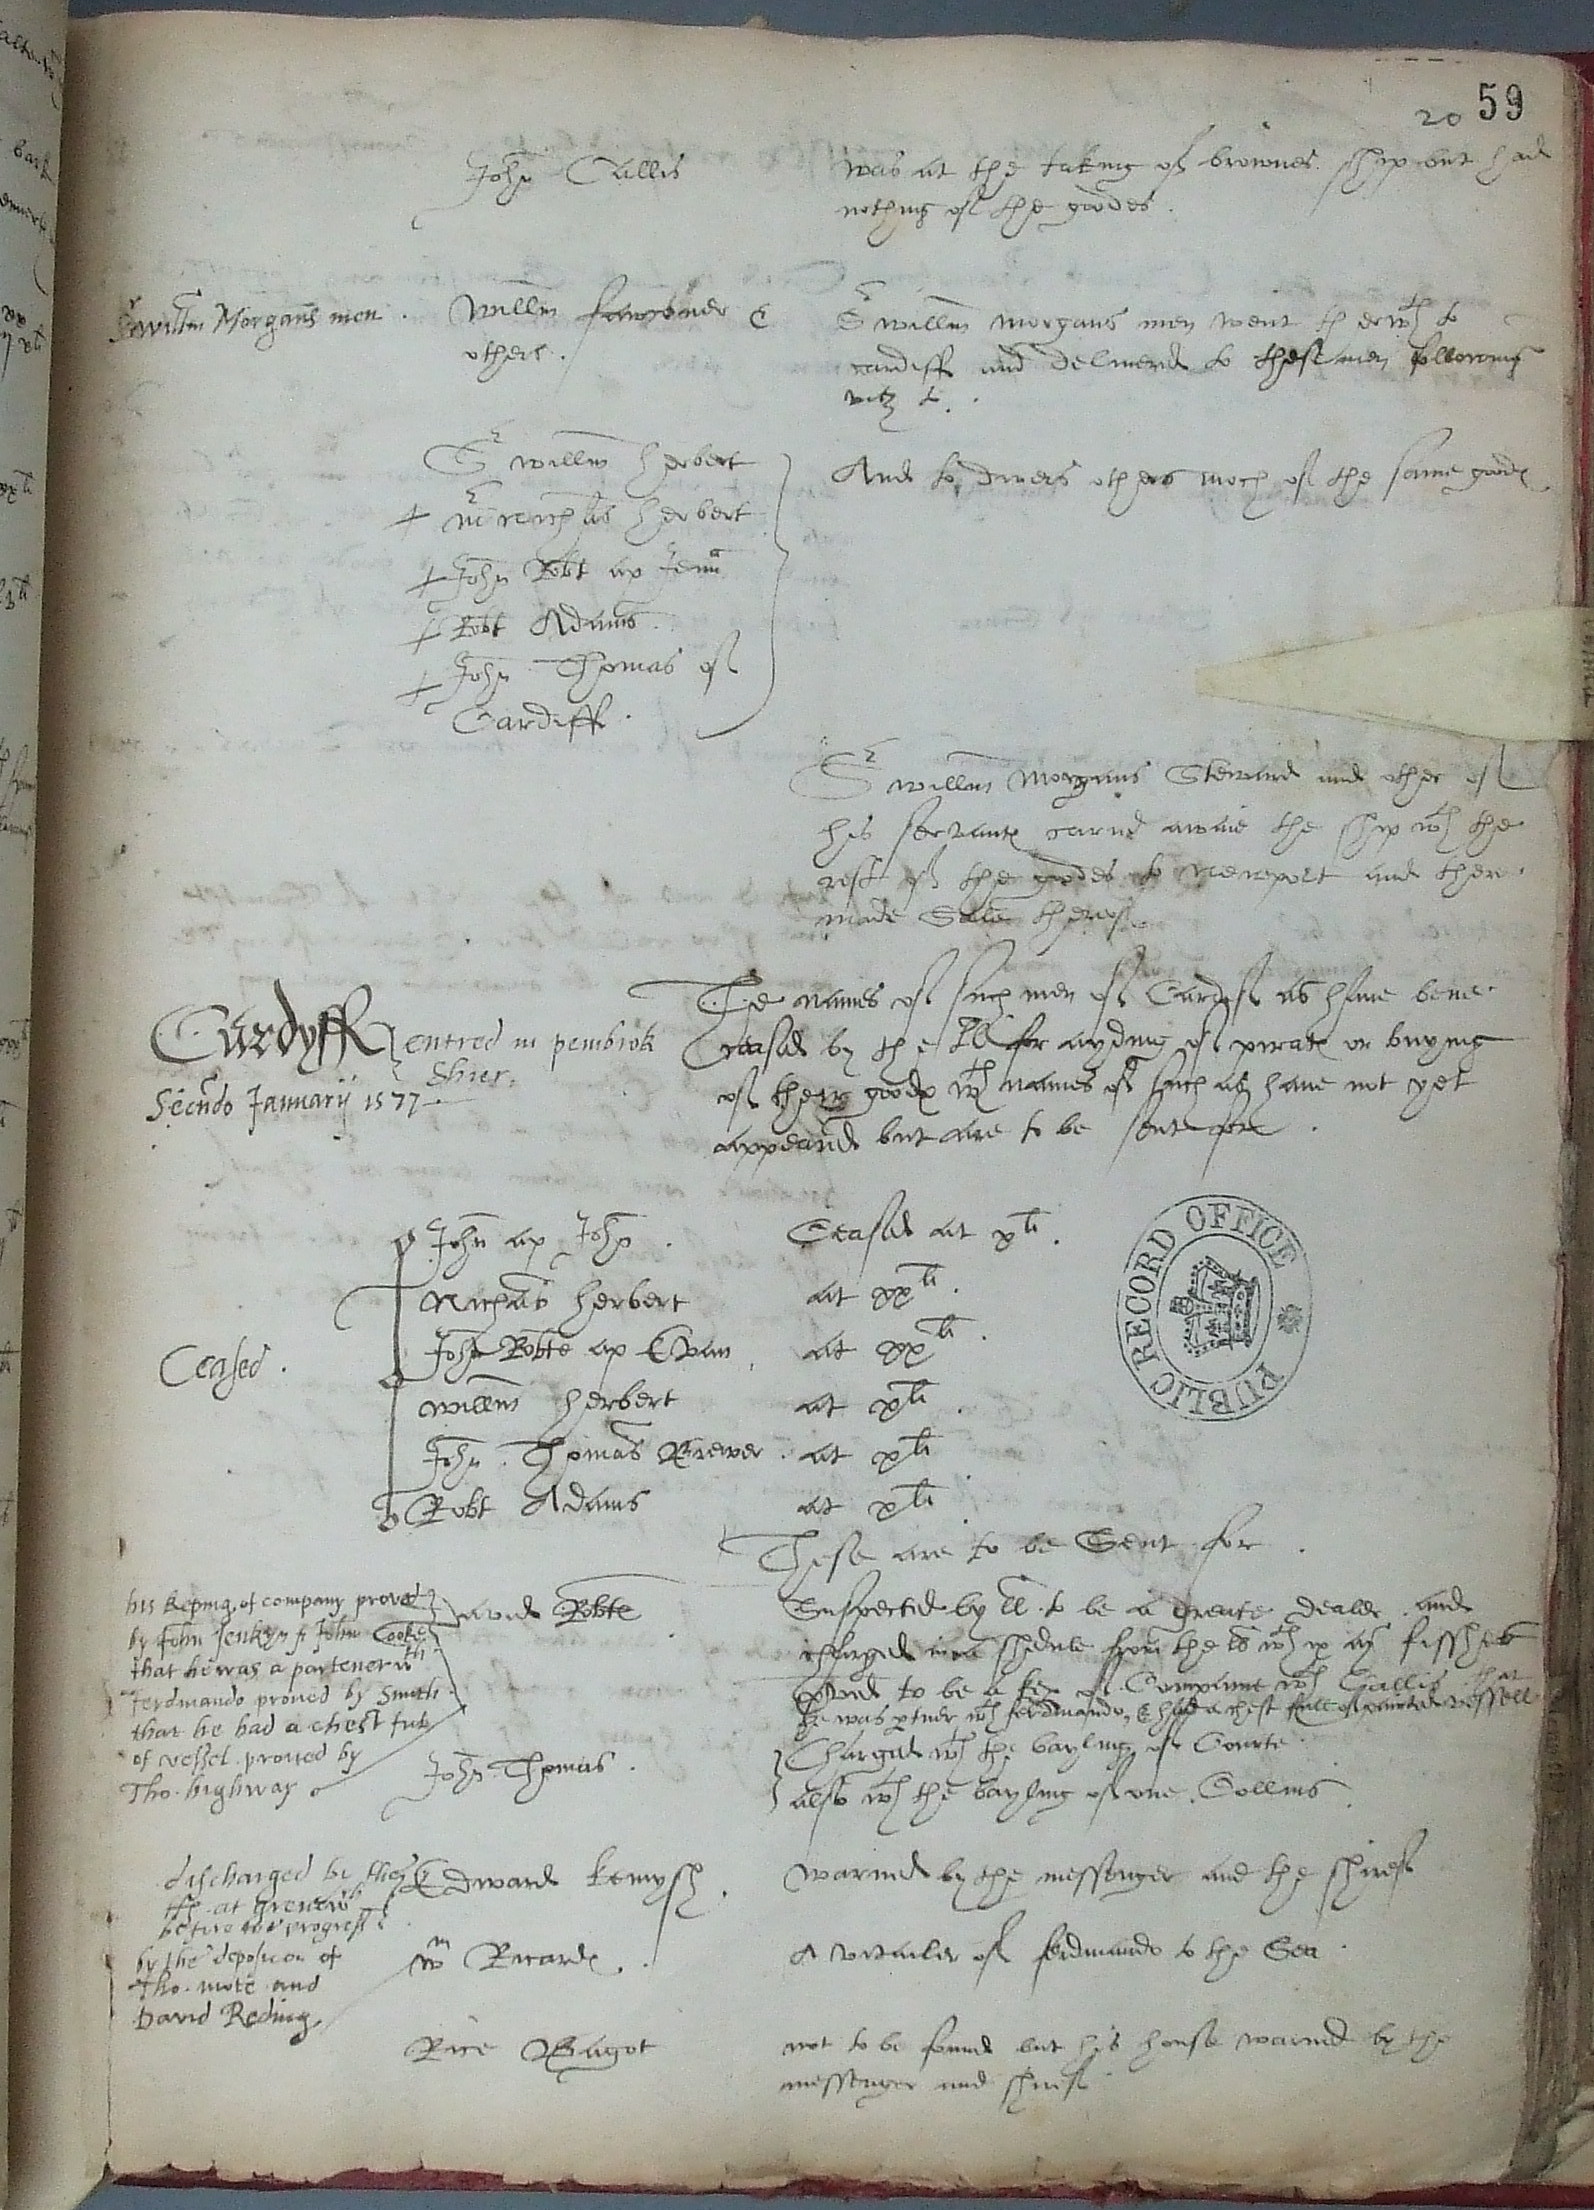 20 59
John Callis
was at the taking of brownes ship but had
nothing of the goodes.
Sr willm Morgans men.
Willm &
others.
Sr willm morgans men went therwth to
cardiff and deliuered to these men following
vitz to.
Sr willm herbert
+ mr nichas herbert
+ John Robt ap Jeuan
+ Robt Adams.
+ John Thomas of
Cardiff.
And to divers others moch of the same goodes
Sr willm Morgans Steward and other of
his servantes caried awaie the ship wth the
rest of the goodes to newport and there
made Sale therof.
Cardyff
entred in pembrok
Shier.
Secundo Januarij 1577
The names of such men of Cardif as haue bene
Ceased by the ll for ayding of pirates or buying
of their goodes wth names of such as haue not yet
appeared but are to be sent for.
Ceased.
John ap John. Ceased at xli.
Nichas herbert at xxli.
John Robte ap Evan at xxli.
willm herbert at xli.
John Thomas Brewer. at xli
Robt Adams at xli
These are to be Sent for.
his keping of company proved
by John Jenkyn & John Cooke
that he was a partener wth
ferdinando proued by Smith
that he had a chest full
of vessel proued by
Tho. highway
Dauid Robte
Suspected by ll to be a greate dealer and
to be a of Companie wth Callis that
he was ptner wth ferdinando, & had a chest full of vessell
John Thomas.
Charged wth the bayling of Courte
also wth the bayling of one Collins.
discharged by
at Grenewch
before progresse
Edward kemysh.
warned by the messenger and the shiref
by the deposicon of
Tho. mote and
David Reding
wm Ricardes.
A vitailer of ferdinando to the Sea.
Rice Bagot
not to be found but his house warned by the
messenger and shiref.
PUBLIC RECORD OFFICE